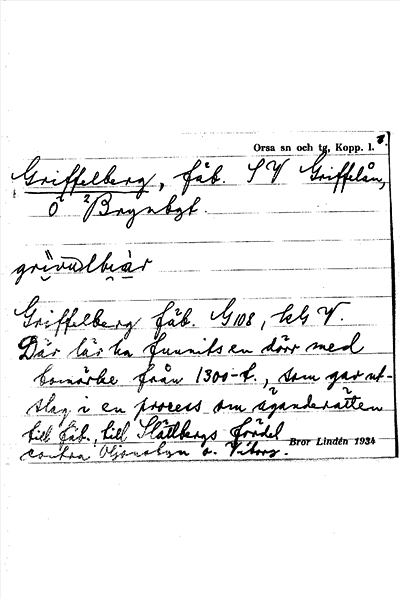 Orsa sn och tg, Kopp. l. 8.
Griffelberg, fäb. SV Griffelån,
Ö Brynbgt.
Griffelberg fäb. G108, kG V.
Där lär ha funnits en dörr med
bomärke från 1300-t., som gav ut-
slag i en process om äganderätten
till fäb., till Slättbergs fördel
contra Oljonsbyn o. Viborg.
Bror Lindén 1934